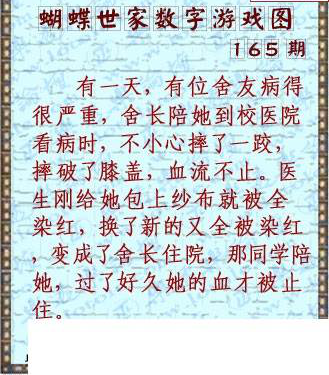 蝴蝶世家数字游戏图
165期
有一天，有位舍友病得
很严重，舍长陪她到校医院
看病时，不小心摔了一跤，
摔破了膝盖，血流不止。医
生刚给她包上纱布就被全
染红，换了新的又全被染红
，变成了舍长住院，那同学陪
她，过了好久她的血才被止
住。